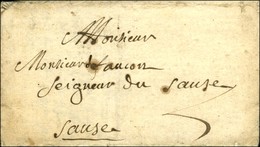 Monsieur
Monsieur d'Faucon
Seigneur du Sause
Sause